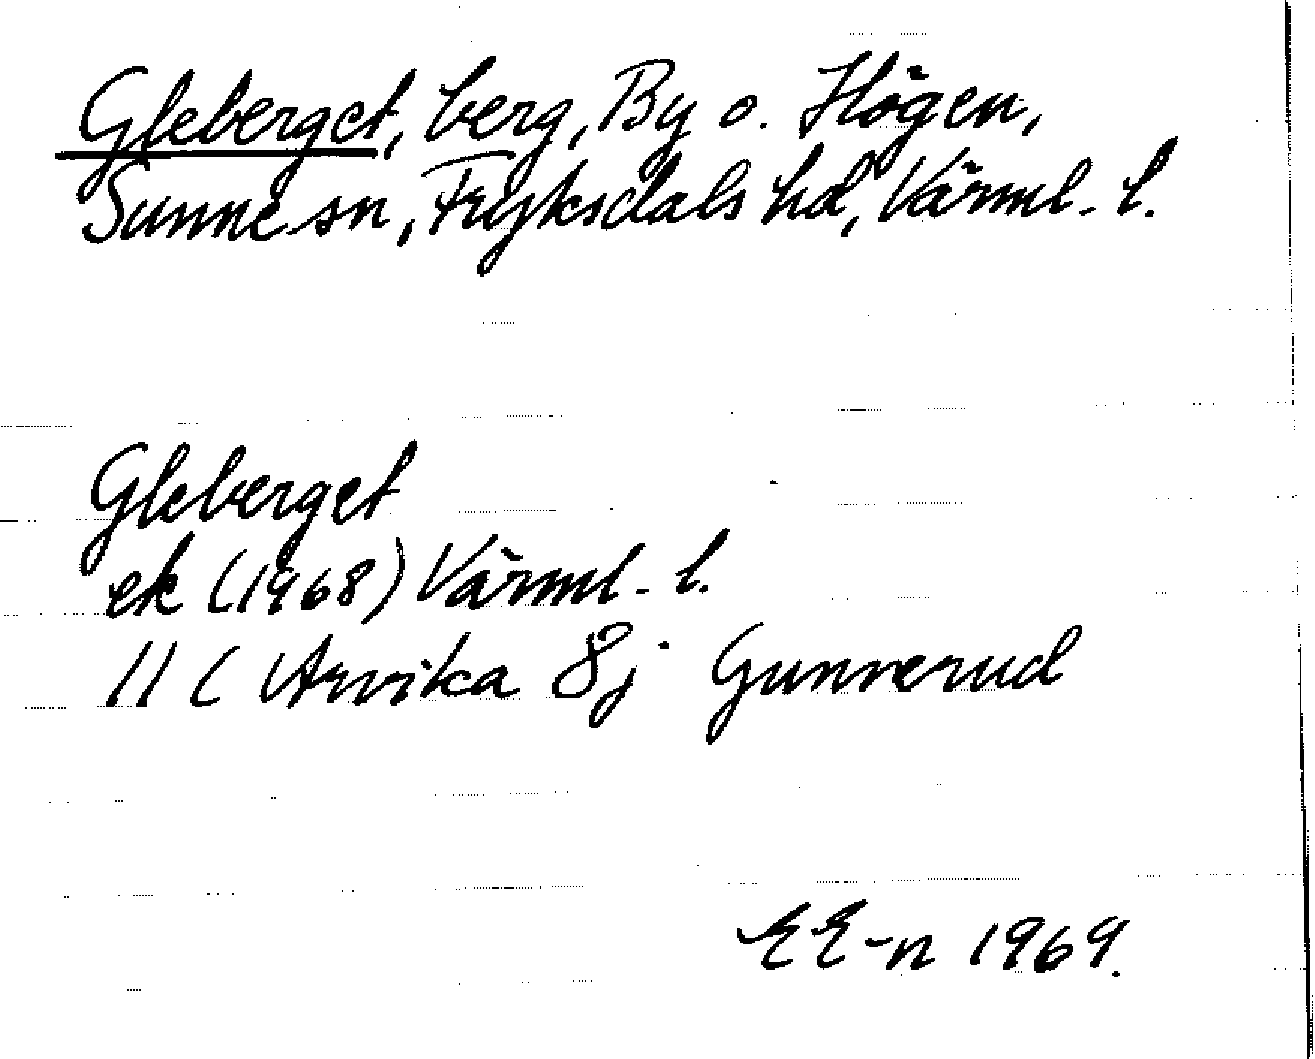 Gleberget, berg, By o. Högen,
Sunne sn, Fryksdals hd, Värml. l.
Gleberget
ek (1968) Värml. l.
11 C Arvika 8j Gunnerud
EE-n 1969.